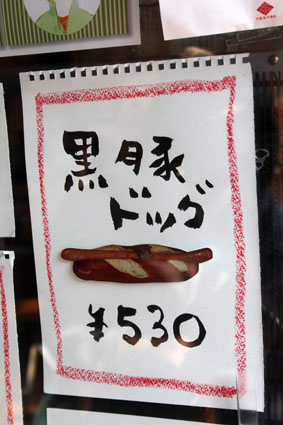 黒豚
ドッグ
¥530